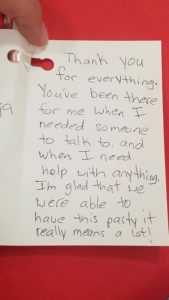 Thank you
for everything.
You've been there
for me when I
needed someone
to talk to, and
when I need
help with anything.
I'm glad that we
were able to
have this party it
really means a lot!